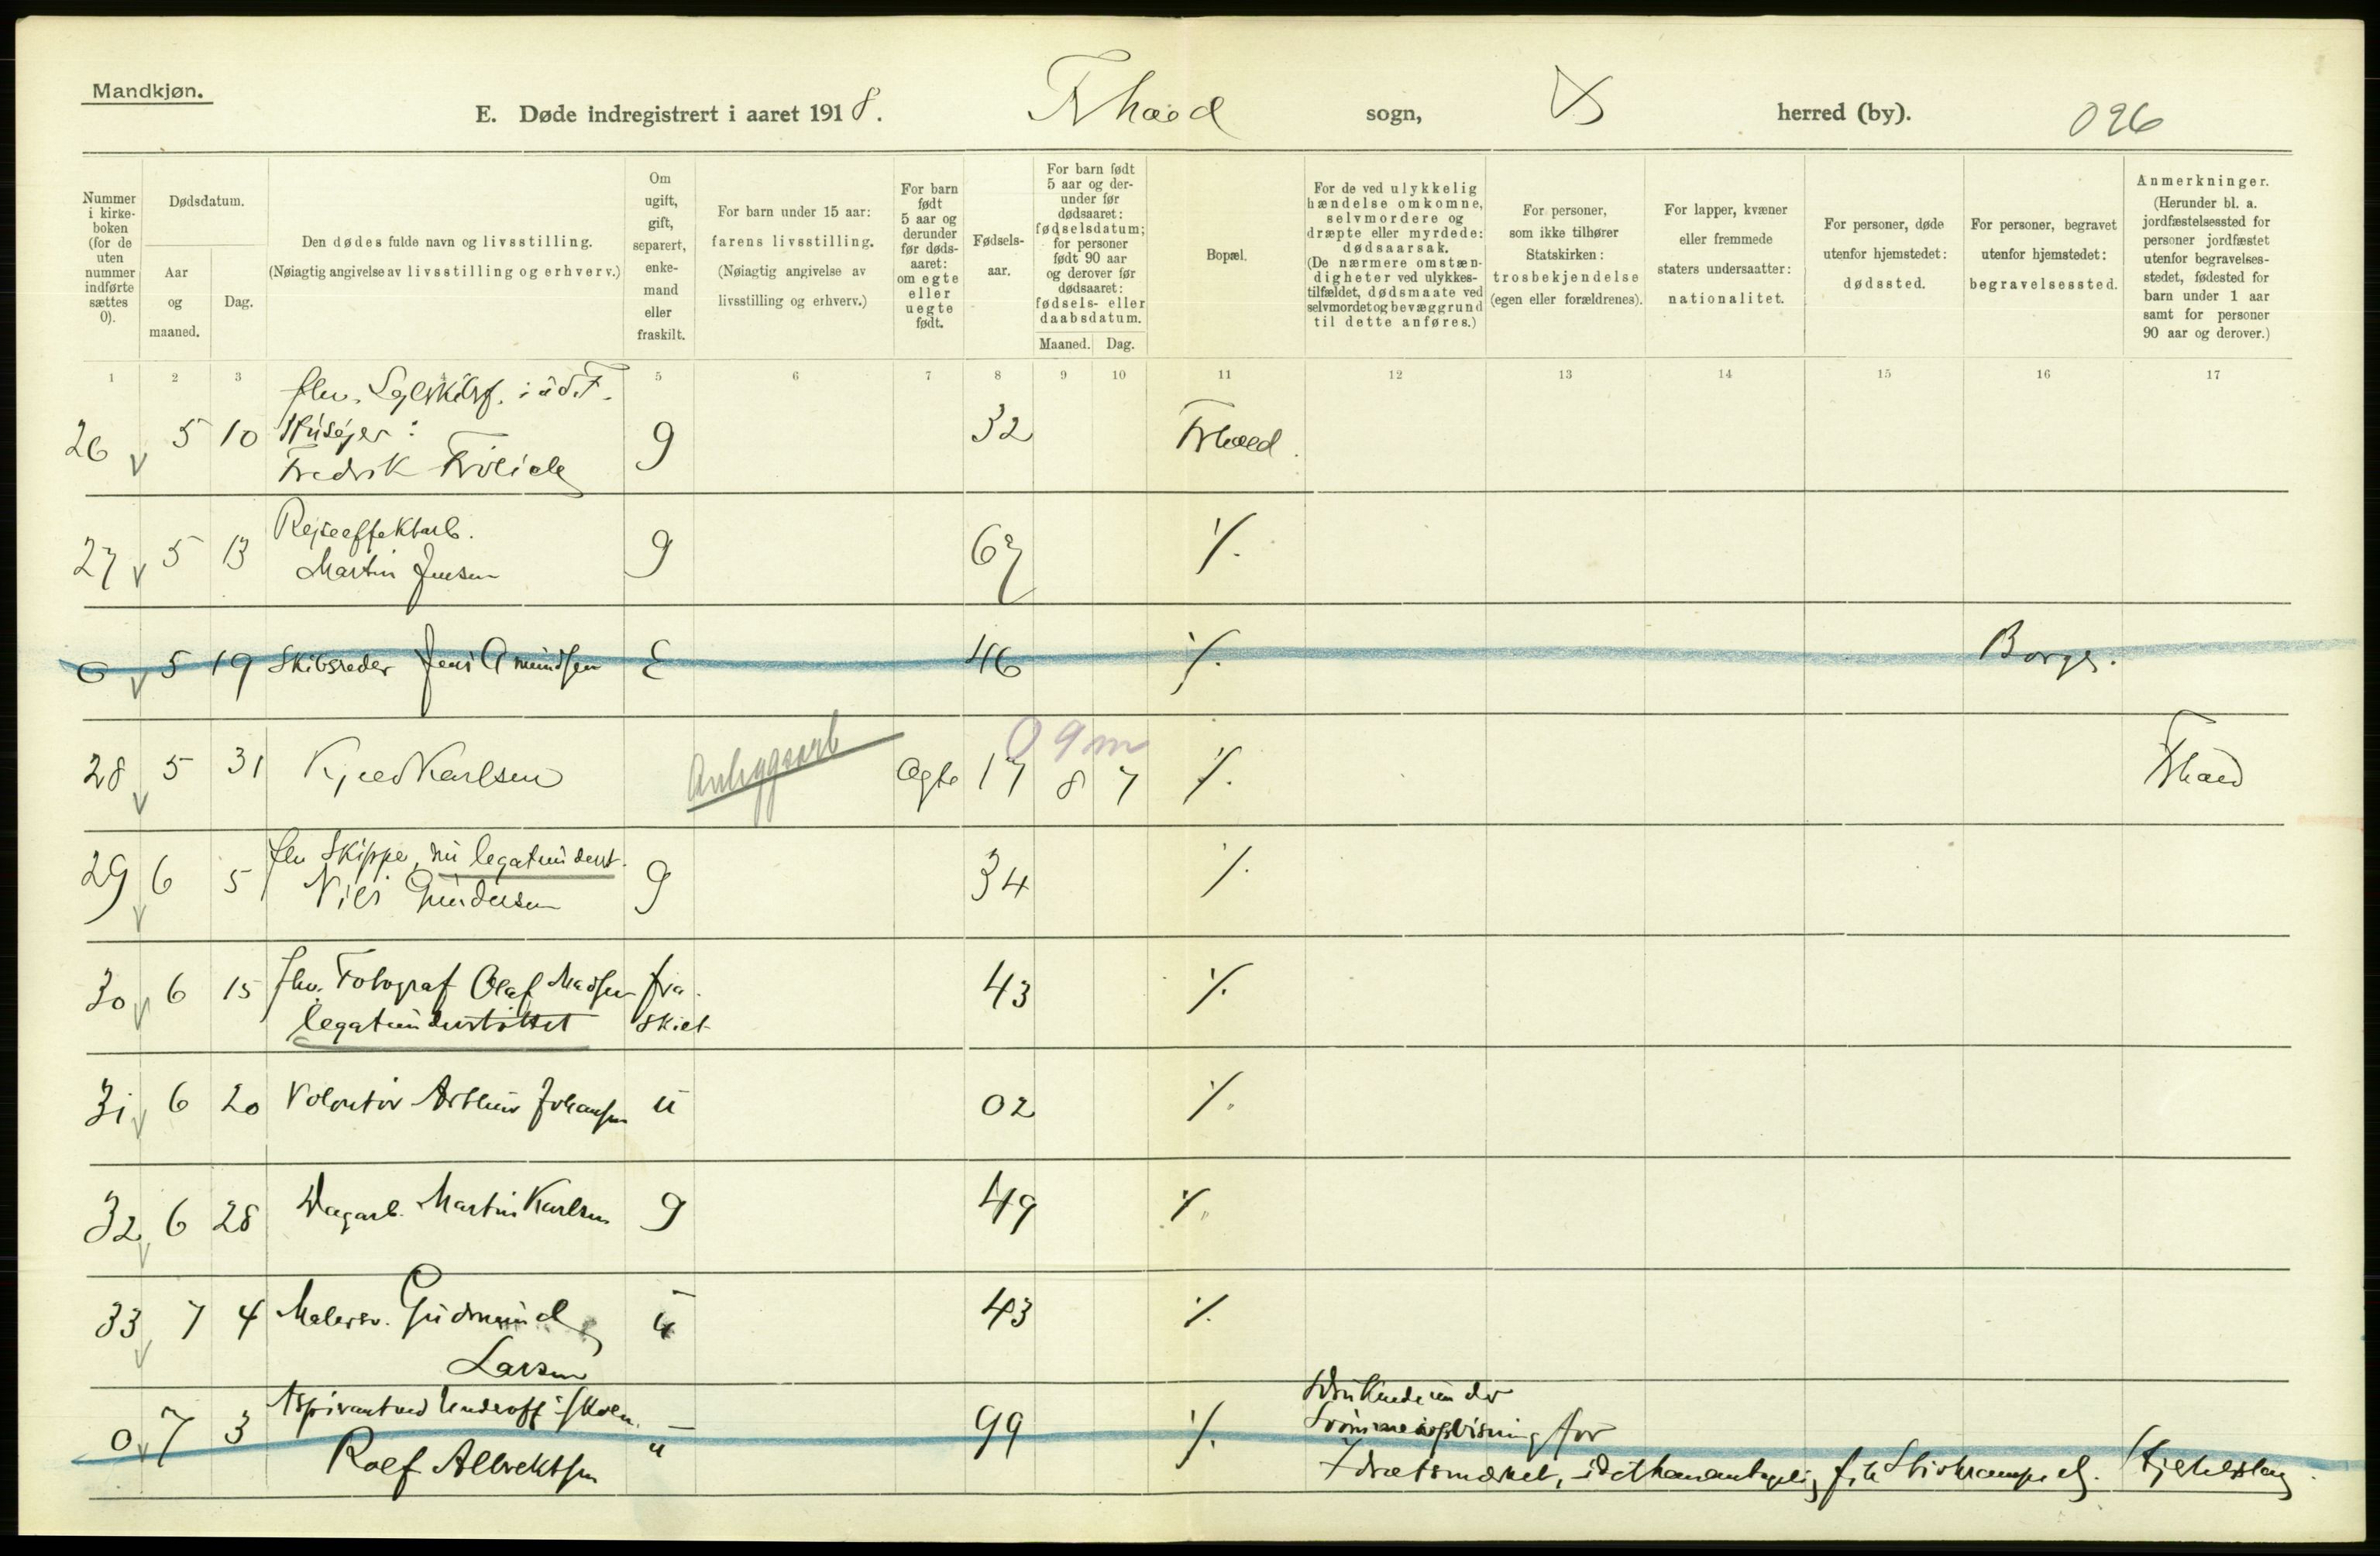 Mandkjøn.
E. Døde indregistrert i aaret 1918.
Frhald
sogn,
herred (by).
026
Nummer
i kirke-
boken
(for de
uten
nummer
indførte
sættes
0).
Dødsdatum.
Aar
og
maaned.
Dag.
Den dødes fulde navn og livsstilling.
(Nøiagtig angivelse av livsstilling og erhverv.)
Om
ugift,
gift,
separert,
enke-
mand
eller
fraskilt.
For barn under 15 aar:
farens livsstilling.
(Nøiagtig angivelse av
livsstilling og erhverv.)
For barn
født
5 aar og
derunder
før døds-
aaret:
om egte
eller
uegte
født.
Fødsels-
aar.
For barn født
5 aar og der-
under før
dødsaaret:
fødselsdatum;
for personer
født 90 aar
og derover før
dødsaaret:
fødsels- eller
daabsdatum.
Maaned.
Dag.
Bopæl.
For de ved ulykkelig
hændelse omkomne,
selvmordere og
dræpte eller myrdede:
dødsaarsak.
(De nærmere omstæn-
digheter ved ulykkes-
tilfældet, dødsmaate ved
selvmordet og bevæggrund
til dette anføres.)
For personer,
som ikke tilhører
Statskirken:
trosbekjendelse
(egen eller forældrenes).
For lapper, kvæner
eller fremmede
staters undersaatter:
nationalitet.
For personer, døde
utenfor hjemstedet:
dødssted.
For personer, begravet
utenfor hjemstedet:
begravelsessted.
Anmerkninger.
(Herunder bl. a.
jordfæstelsessted for
personer jordfæstet
utenfor begravelses-
stedet, fødested for
barn under 1 aar
samt for personer
90 aar og derover.)
1 2 3 5 6 7 8 9 10 11 12 13 14 15 16 17
fhv.
26 5 10 g 32 Frhald.
Fredrik Frölich
Rejseeffektarb.
27 5 13 Martin Jensen g 67 ⁒
0 5 19 Skibsreder Jens Amundsen E 46 ⁒ Borge.
09m
28 5 31 Karlsen Anlæggsarb Ægte 17 8 7 ⁒ Frhald
fhv Skipper, nu legatunderst.
29 6 5 Nils Gundersen g 34 ⁒
30 6 15 fhv. Fotograf Olaf Madsen fra- 43 ⁒
legatunderstöttet skiet
31 6 20 Volontör Arthur Johansen u 02 ⁒
32 6 28 Dagarb. Martin Karlsen g 49 ⁒
33 7 4 Malersv. Gudmund u 43 ⁒
Larsen
Aspirant ved Underoff.skolen. Druknede under
0 7 3 u 99 ⁒ Svömmeopvisning for
Rolf Albrektsen Idrætsmærket, idet han antagelig fik